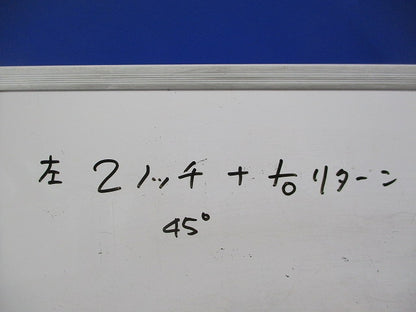 左 2ノッチ + 右リターン
45°